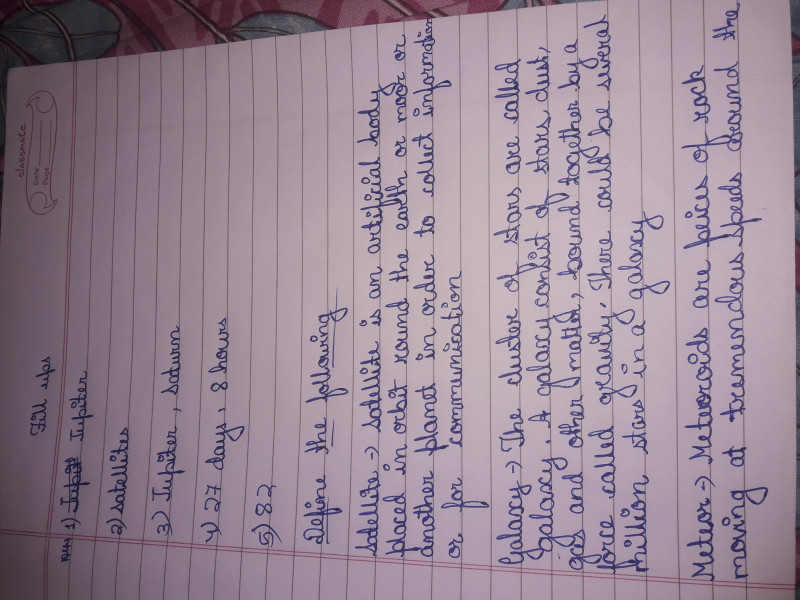 classmate
Date
Page
Fill ups
Ans 1) Jupit Jupiter
2) satellites
3) Jupiter, saturn
4) 27 days, 8 hours
5) 82
Define the following
Satellite → satellite is an artificial body
placed in orbit round the earth or moor or
another planet in order to collect information
or for communication
Galaxy → The cluster of stars are called
Galaxy. A galaxy consist of stars, dust,
gas and other matter, bound together by a
force called gravity. There could be several
million stars in a galaxy
Meteor → Meteoroids are peices of rock
moving at tremendous speeds around the